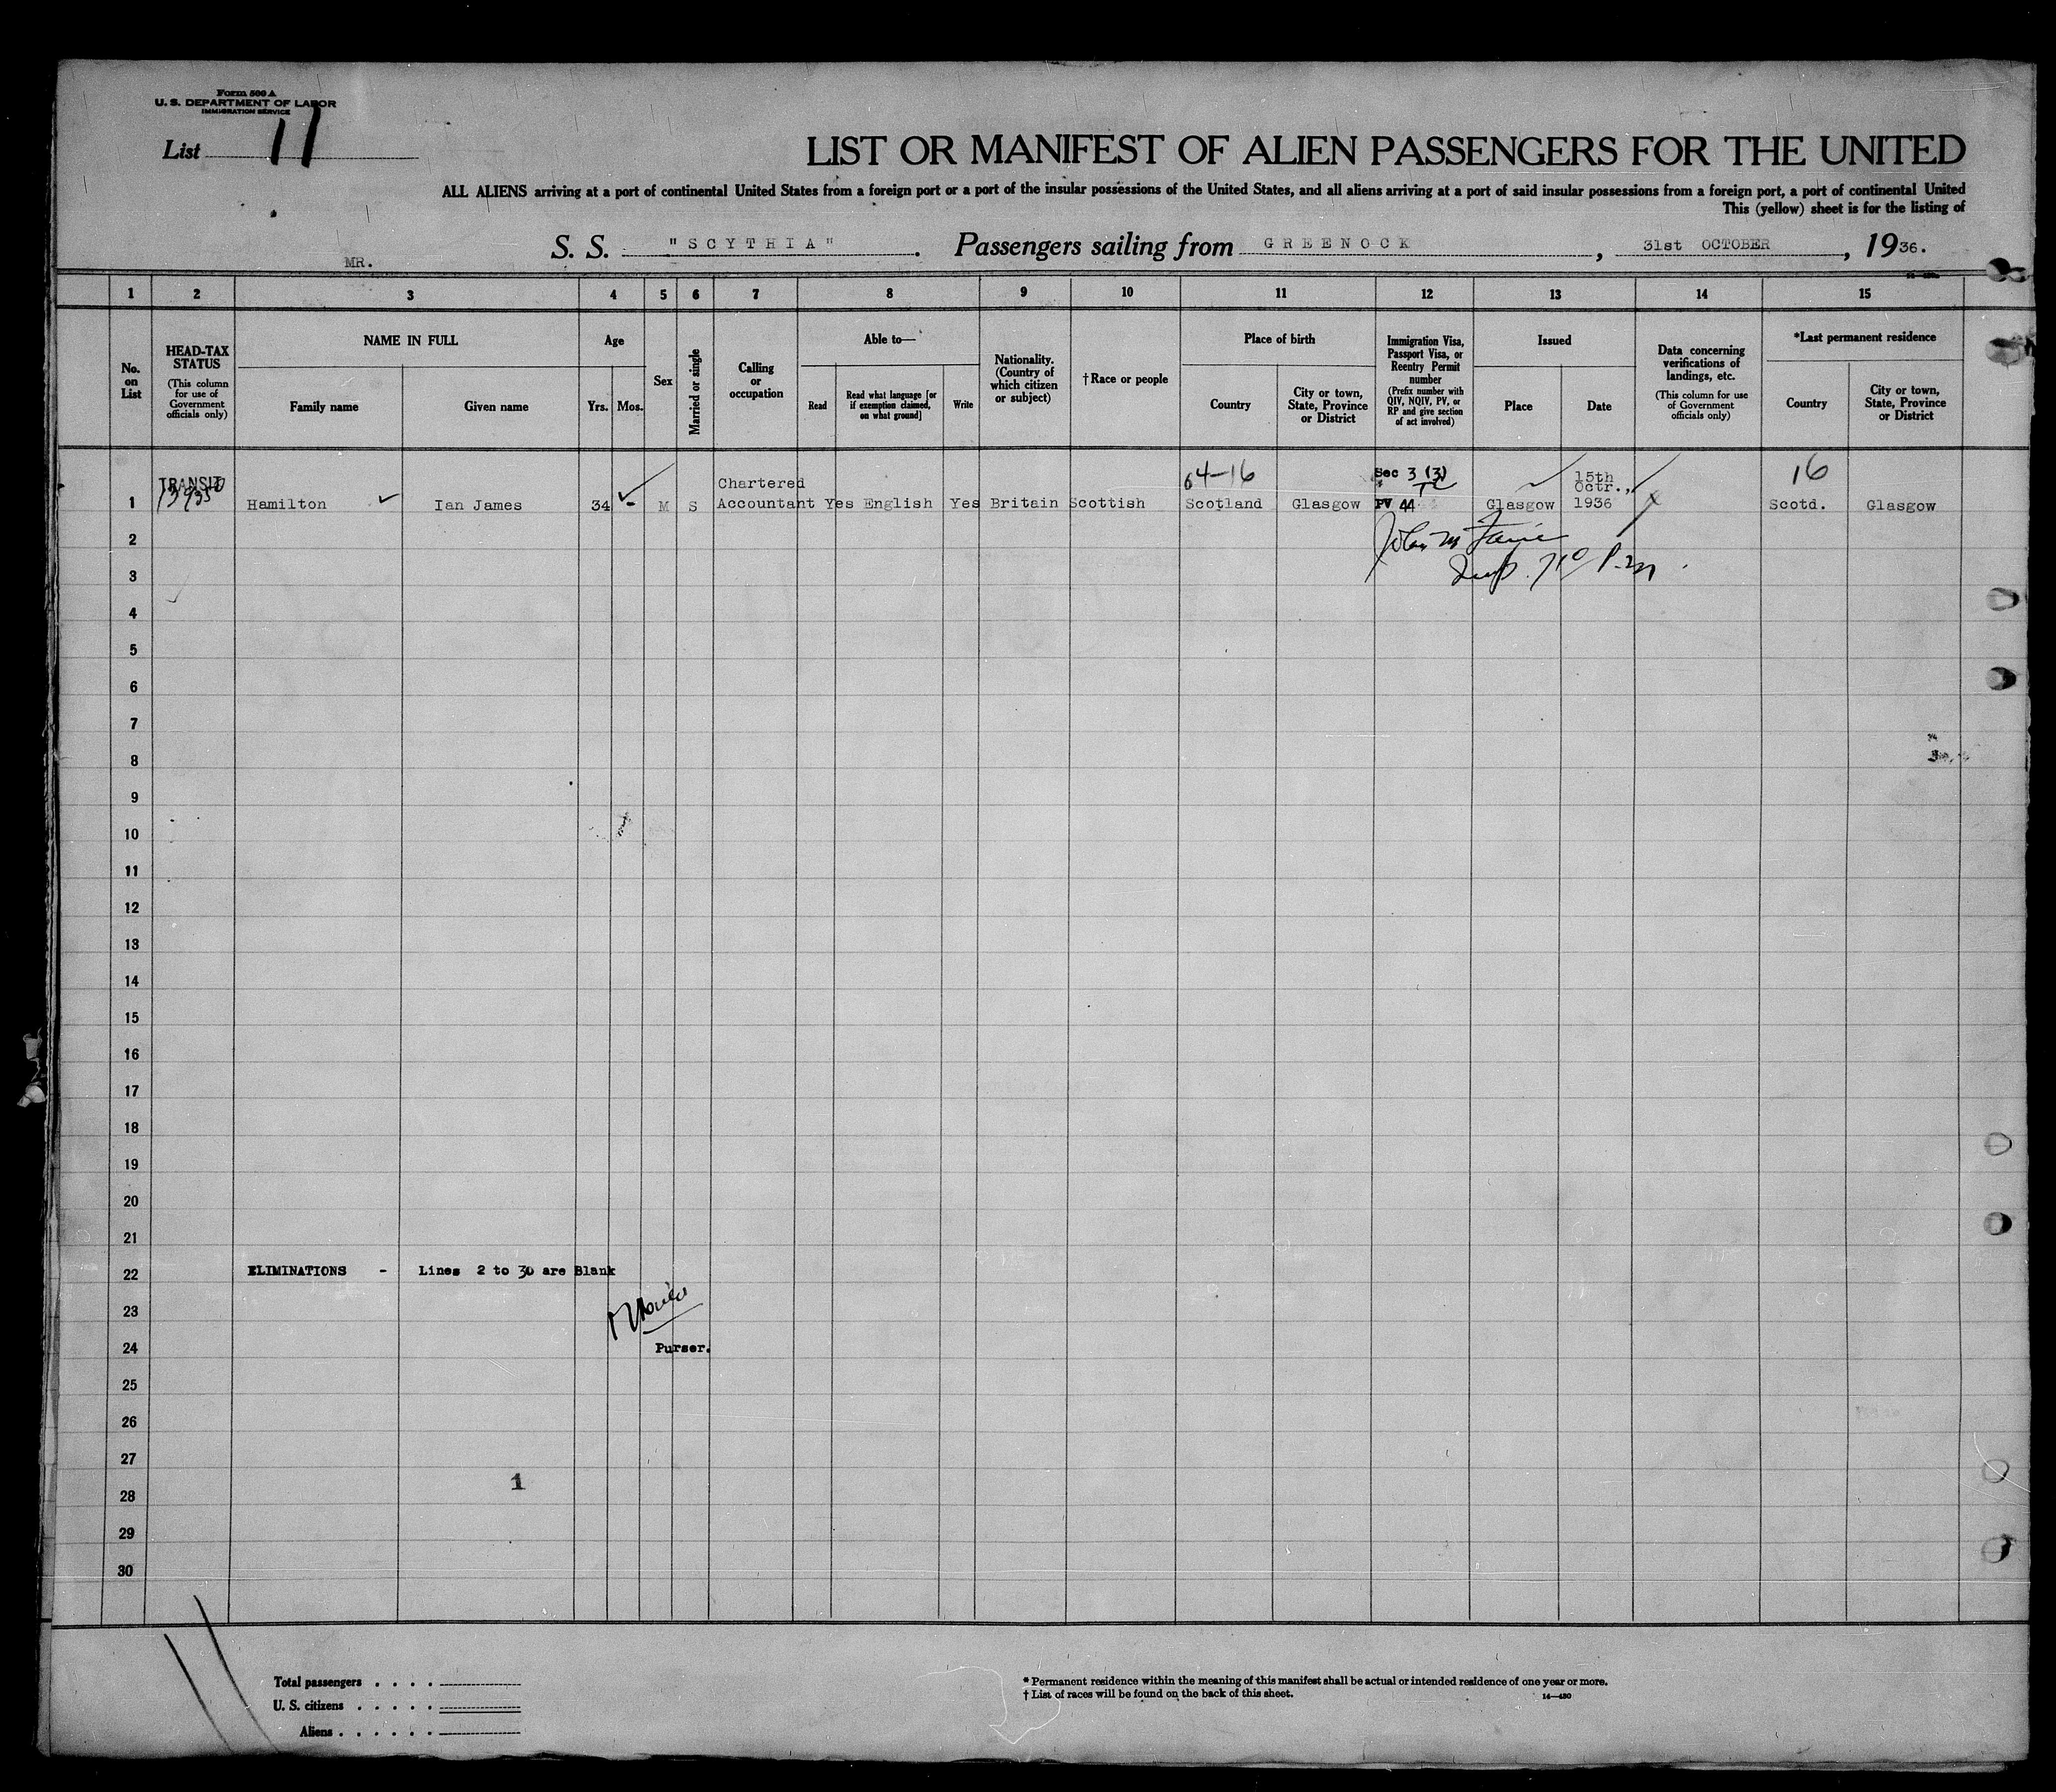 Form 500 A
U. S. DEPARTMENT OF LABOR
IMMIGRATION SERVICE
List 11
LIST OR MANIFEST OF ALIEN PASSENGERS FOR THE UNITED
ALL ALIENS arriving at a port of continental United States from a foreign port or a port of the insular possessions of the United States, and all aliens arriving at a port of said insular possessions from a foreign port, a port of continental United
This (yellow) sheet is for the listing of
S. S. "SCYTHIA". Passengers sailing from GREENOCK, 31st OCTOBER, 1936.
MR.
1 2 3 4 5 6 7 8 9 10 11 12 13 14 15
No. on List
HEAD-TAX STATUS
(This column for use of Government officials only)
NAME IN FULL
Family name
Given name
Age
Yrs. Mos.
Sex
Married or single
Calling or occupation
Able to—
Read
Read what language [or if exemption claimed, on what ground]
Write
Nationality. (Country of which citizen or subject)
†Race or people
Place of birth
Country
City or town, State, Province or District
Immigration Visa, Passport Visa, or Reentry Permit number
(Prefix number with QIV, NQIV, PV, or RP and give section of act involved)
Issued
Place
Date
Data concerning verifications of landings, etc.
(This column for use of Government officials only)
*Last permanent residence
Country
City or town, State, Province or District
TRANSIT
Chartered 64-16 Sec 3 (3) 15th Octr., 16
1 Hamilton Ian James 34 - M S Accountant Yes English Yes Britain Scottish Scotland Glasgow PV 44 Glasgow 1936 Scotd. Glasgow
2
3
4
5
6
7
8
9
10
11
12
13
14
15
16
17
18
19
20
21
22 ELIMINATIONS - Lines 2 to 30 are Blank
23
24 Purser.
25
26
27
1
28
29
30
Total passengers . . . .
U. S. citizens . . . . .
Aliens . . . . . .
* Permanent residence within the meaning of this manifest shall be actual or intended residence of one year or more.
† List of races will be found on the back of this sheet.
14—430